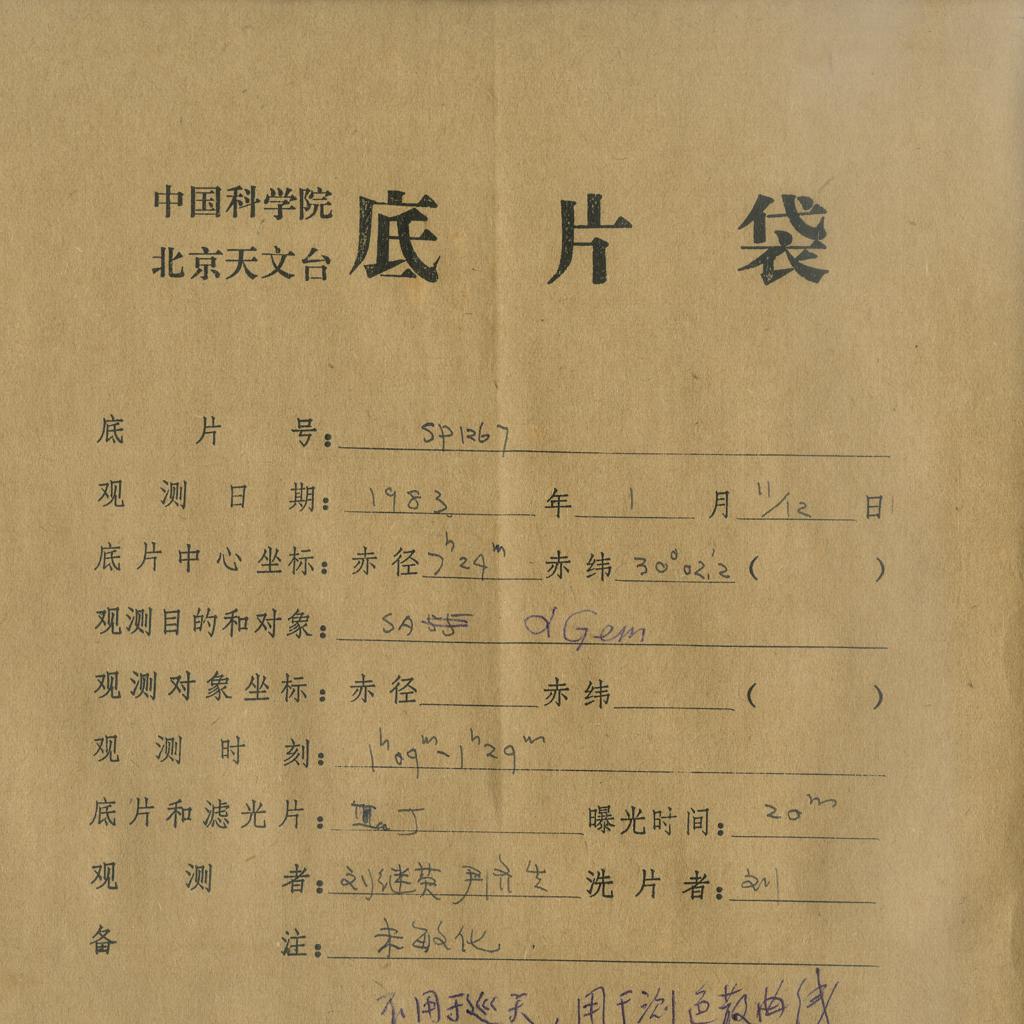 中国科学院
北京天文台 底片袋
底片号: SP1267
观测日期: 1983 年 1 月 11/12 日
底片中心坐标: 赤径 7h24m 赤纬 30°02.'2 ( )
观测目的和对象: SA 55 α Gem
观测对象坐标: 赤径 赤纬 ( )
观测时刻: 1h09m-1h29m
底片和滤光片: IIaJ 曝光时间: 20m
观测者: 刘继英 尹济生 洗片者: 刘
备注: 未敏化.
不用于巡天,用于测色散曲线